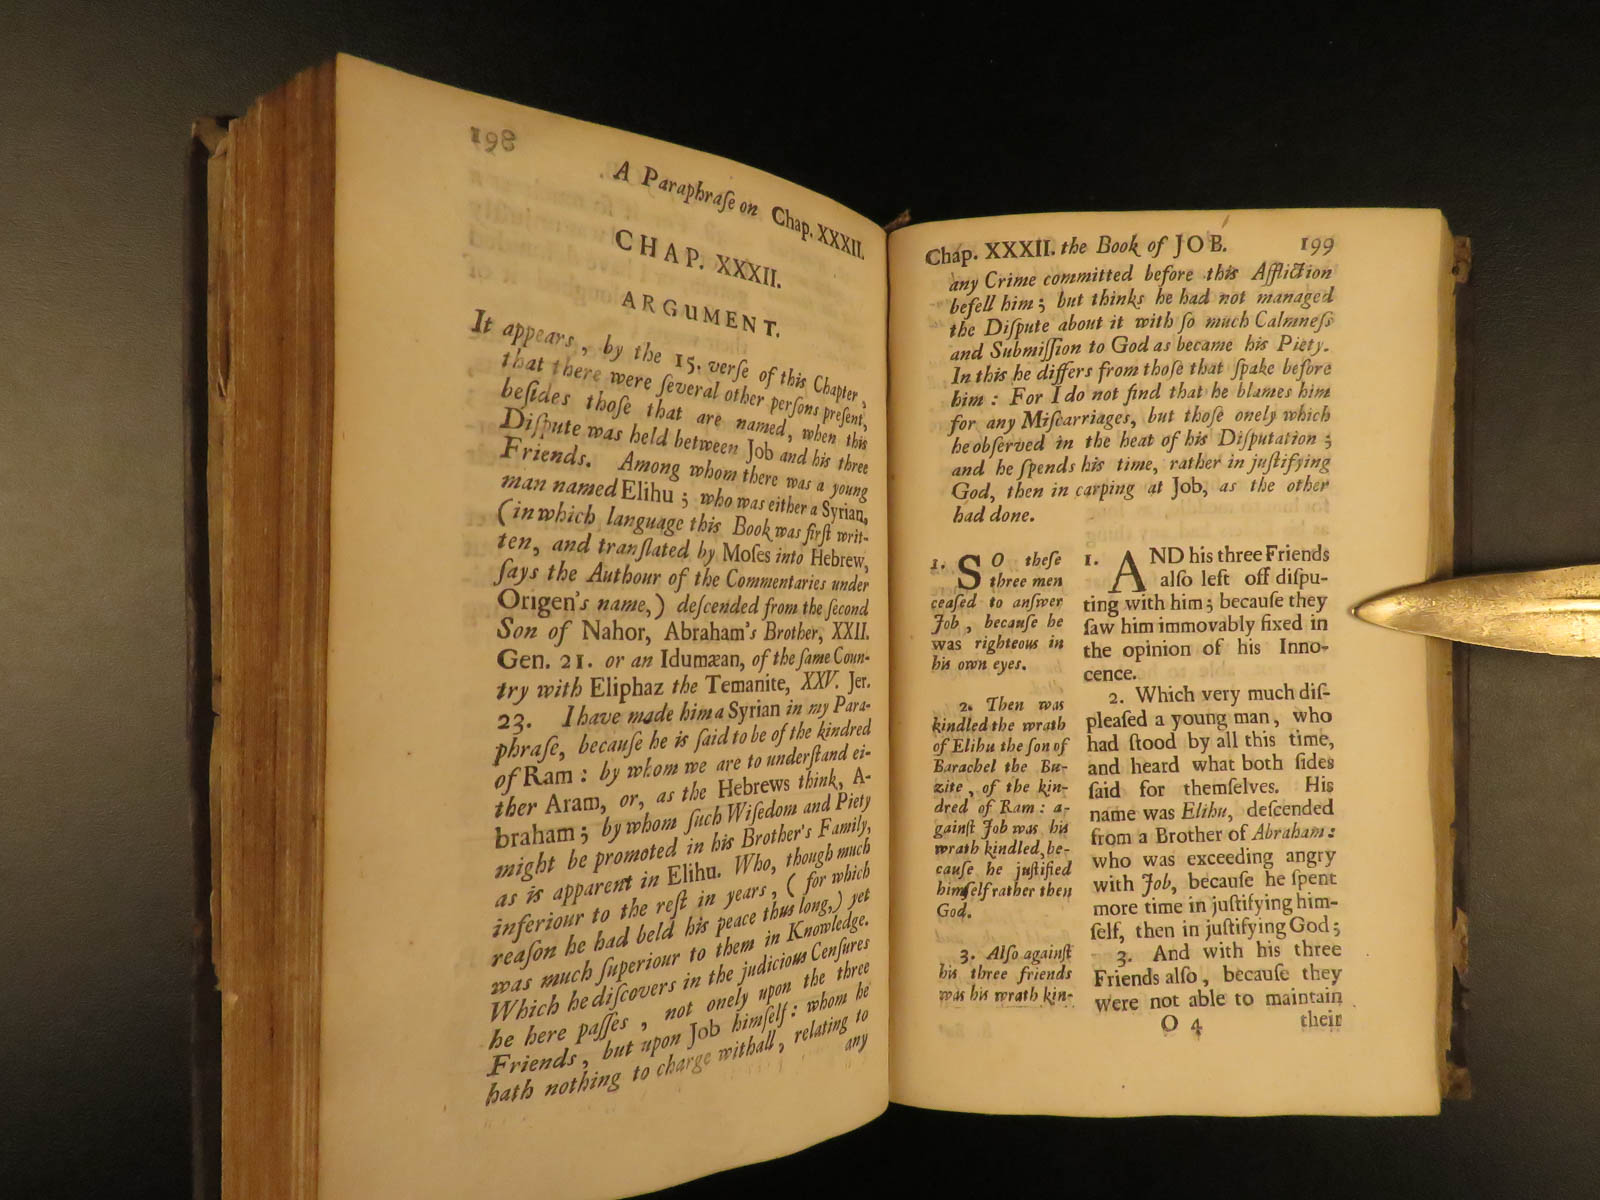 198
A Paraphraſe on Chap. XXXII.
CHAP. XXXII.
ARGUMENT.
It appears, by the 15. verſe of this Chapter,
that there were ſeveral other perſons preſent,
beſides thoſe that are named, when this
Diſpute was held between Job and his three
Friends. Among whom there was a young
man named Elihu; who was either a Syrian,
(in which language this Book was firſt writ-
ten, and tranſlated by Moſes into Hebrew,
ſays the Authour of the Commentaries under
Origen's name,) deſcended from the ſecond
Son of Nahor, Abraham's Brother, XXII.
Gen. 21. or an Idumæan, of the ſame Coun-
try with Eliphaz the Temanite, XXV. Jer.
23. I have made him a Syrian in my Para-
phraſe, becauſe he is ſaid to be of the kindred
of Ram: by whom we are to underſtand ei-
ther Aram, or, as the Hebrews think, A-
braham; by whom ſuch Wiſedom and Piety
might be promoted in his Brother's Family,
as is apparent in Elihu. Who, though much
inferiour to the reſt in years, (for which
reaſon he had held his peace thus long,) yet
was much ſuperiour to them in Knowledge.
Which he diſcovers in the judicious Cenſures
he here paſſes, not onely upon the three
Friends, but upon Job himſelf: whom he
hath nothing to charge withall, relating to
any
Chap. XXXII. the Book of JOB. 199
any Crime committed before this Affliction
befell him; but thinks he had not managed
the Diſpute about it with ſo much Calmneſs
and Submiſſion to God as became his Piety.
In this he differs from thoſe that ſpake before
him: For I do not find that he blames him
for any Miſcarriages, but thoſe onely which
he obſerved in the heat of his Diſputation;
and he ſpends his time, rather in juſtifying
God, then in carping at Job, as the other
had done.
1. SO theſe
three men
ceaſed to anſwer
Job, becauſe he
was righteous in
his own eyes.
2. Then was
kindled the wrath
of Elihu the ſon of
Barachel the Bu-
zite, of the kin-
dred of Ram: a-
gainſt Job was his
wrath kindled, be-
cauſe he juſtified
himſelf rather then
God.
3. Alſo againſt
his three friends
was his wrath kin-
1. AND his three Friends
alſo left off diſpu-
ting with him; becauſe they
ſaw him immovably fixed in
the opinion of his Inno-
cence.
2. Which very much diſ-
pleaſed a young man, who
had ſtood by all this time,
and heard what both ſides
ſaid for themſelves. His
name was Elihu, deſcended
from a Brother of Abraham:
who was exceeding angry
with Job, becauſe he ſpent
more time in juſtifying him-
ſelf, then in juſtifying God;
3. And with his three
Friends alſo, becauſe they
were not able to maintain
O 4 their